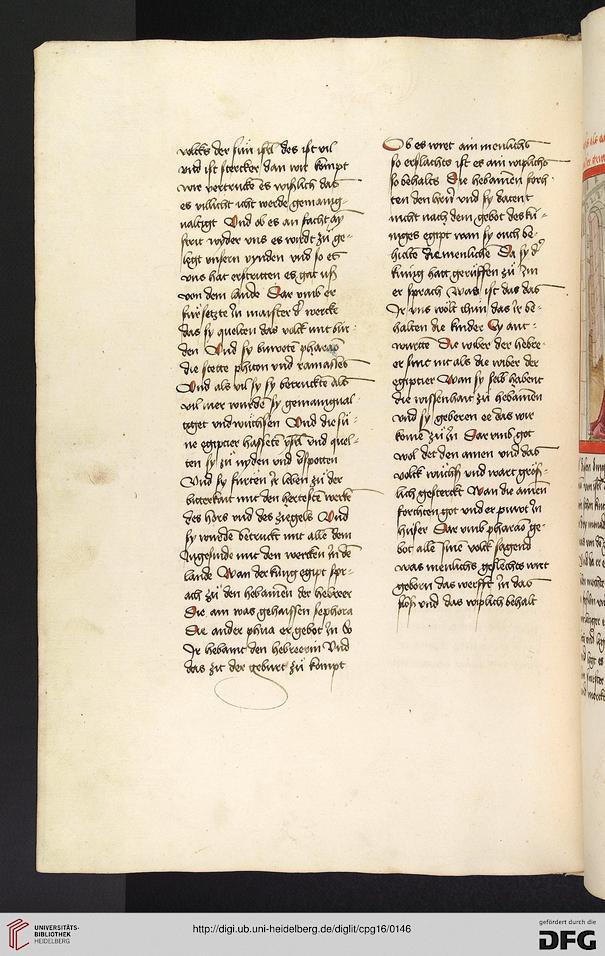 volcks der sün isrl des ist vil
vnd ist stercker dan wir kompt
wir vertrucke es wißlich das
es villicht icht werde gemanig-
ualtigt Vnd ob es an facht ay
strit wyder vns es wirdt zü ge-
legt vnsern vynden vnd so es
vns hat erstritten es gat uß
von dem lande Dar vmb er
für setzte in maister der wercke
das sy quelten das volck mit bür-
den Vnd sy buwete pharao
die stette phiton vnd ramasses
Vnd als vil sy sy betruckte als
vil mer wurde sy gemanigual-
tiget vnd wüchsen Vnd die sü-
ne egipcier hassete isrl vnd quel-
ten sy zü nyden vnd verspotten
Vnd sy furten ir leben zü der
bitterkait mit den herteste werke
des hors vnd des ziegels Vnd
sy wurde betrückt mit alle dem
Ingesinde mit den wercken in de
lande Wan der küng egipt spr-
ach zü den hebamen der hebreer
Die ain was gehaissen sephora
Die ander phua er gebot in So
Ir hebamt den hebreerin Vnd
das zit der geburt zü kumpt
Ob es wirt ain menlichs
so erslachts ist es ain wiplichs
so behalts Die hebamen forch
ten den hern vnd sy datent
nicht nach dem gebot des kü-
niges egipt wan sy ouch be-
hielte die menliche Da sy der
küng hatt gerüffen zü im
er sprach Was ist das das
Ir vns wolt thun das ir be-
halten die kinder Sy ant-
wurtte Die wiber der hebre-
er sint nit als die wiber der
egipcier Wan sy selb habent
die wissenhait zü hebamen
vnd sy geberen ee das wir
kome zü in Dar vmb got
wol det den amen vnd das
volck wüchß vnd wart größ-
lich gesterckt Wan die amen
forchten got vnd er puwt in
hüser Dar vmb pharao ge-
bot alle sine volck sagend
was menlichs geslechts wirt
geborn das werfft in das
floß vnd das wiplich behalt
UNIVERSITÄTS-
BIBLIOTHEK
HEIDELBERG
http://digi.ub.uni-heidelberg.de/diglit/cpg16/0146
gefördert durch die
DFG